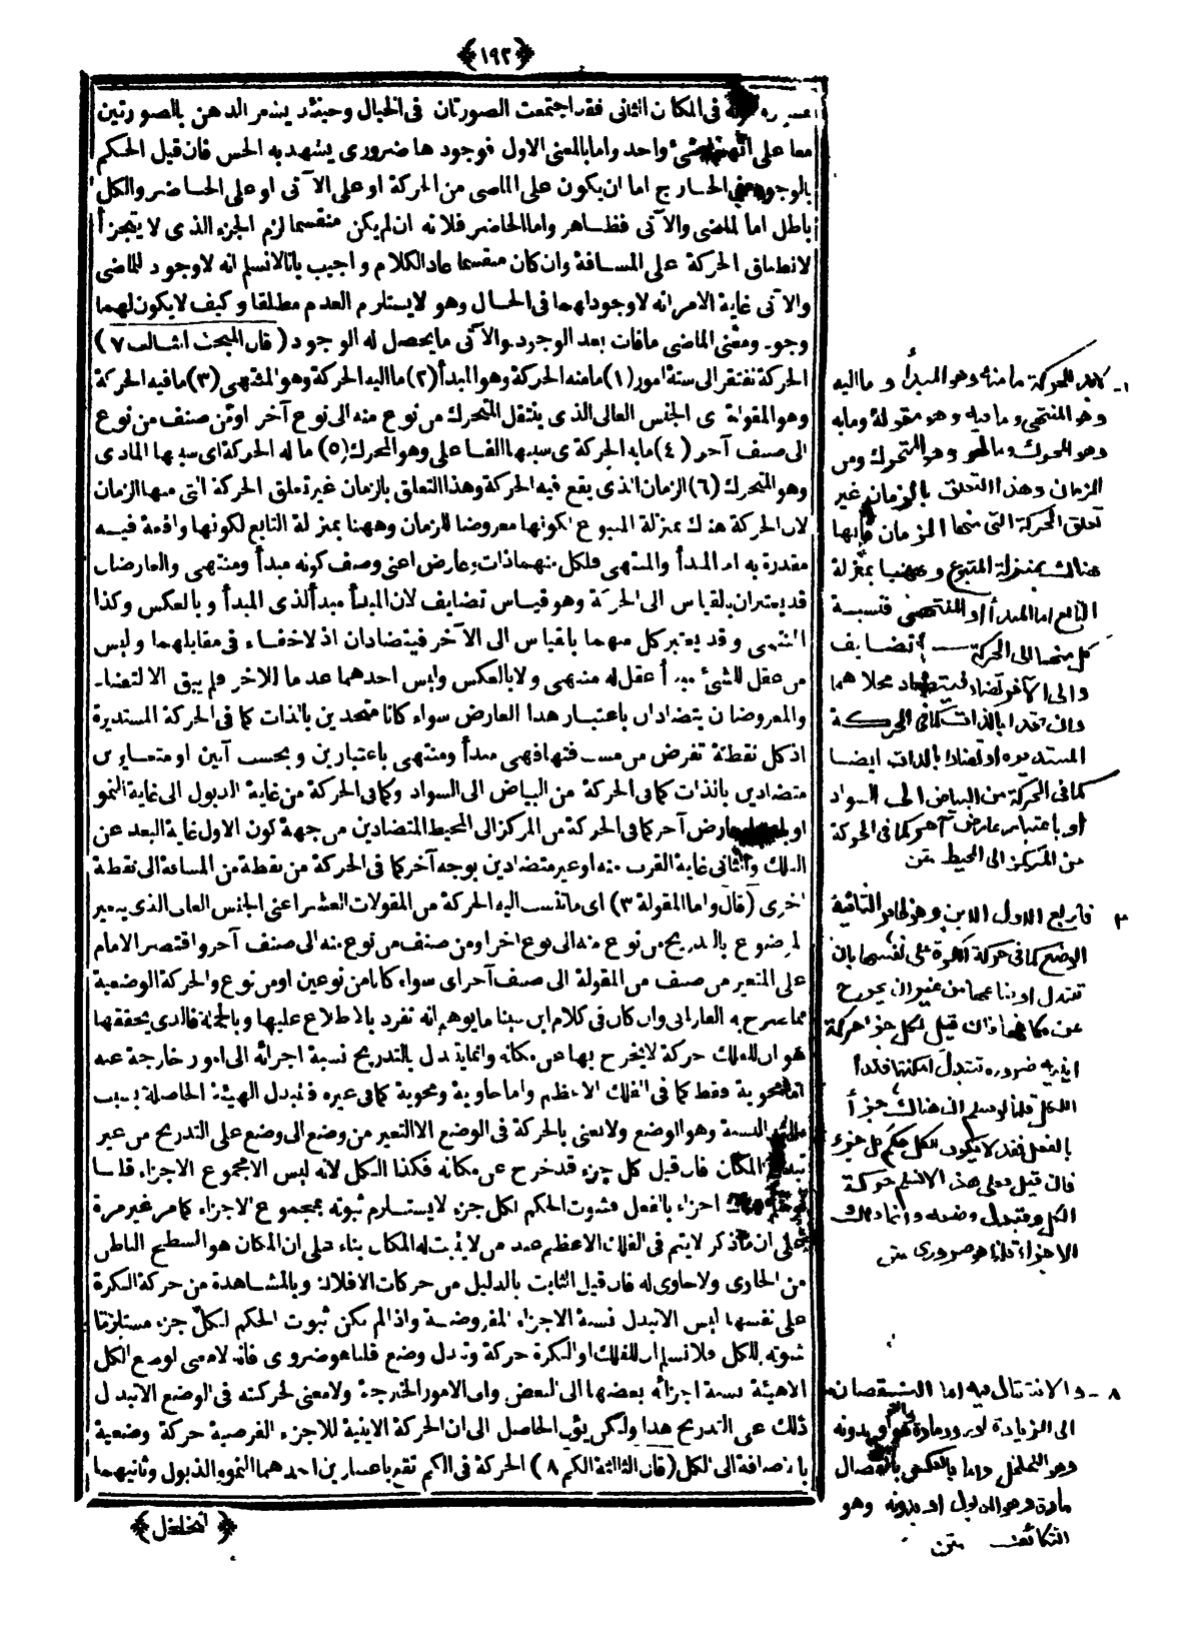 ﴿١٩٢﴾
فى المكان الثانى فقد اجتمعت الصورتان فى الخيال وحينئذ يشعر الذهن بالصورتين
معا على واحد واما بالمعنى الاول فوجودها ضرورى يشهد به الحس فان قيل الحكم
بالوجود فى الخارج اما ان يكون على الماضى من الحركة او على الآتى او على الحاضر والكل
باطل اما الماضى والآتى فظاهر واما الحاضر فلانه ان لم يكن منقسما لزم الجزء الذى لا يتجزأ
لانطباق الحركة على المسافة وان كان منقسما عاد الكلام واجيب بانا لانسلم انه لاوجود للماضى
والآتى غاية الامر انه لاوجود لهما فى الحال وهو لايستلزم العدم مطلقا وكيف لايكون لهما
وجود ومعنى الماضى مافات بعد الوجود والآتى مايحصل له الوجود (قال المبحث الثالث ٧)
الحركة تفتقر الى ستة امور (١) مامنه الحركة وهو المبدأ (٢) مااليه الحركة وهو المنتهى (٣) مافيه الحركة
وهو المقولة اى الجنس العالى الذى ينتقل المتحرك من نوع منه الى نوع آخر او من صنف من نوع
الى صنف آخر (٤) مابه الحركة اى سببها الفاعلى وهو المحرك (٥) ماله الحركة اى سببها المادى
وهو المتحرك (٦) الزمان الذى يقع فيه الحركة وهذا التعلق بالزمان غير تعلق الحركة التى منها الزمان
لان الحركة هناك بمنزلة المتبوع لكونها معروضا للزمان وههنا بمنزلة التابع لكونها واقعة فيه
مقدرة به اما المبدأ والمنتهى فلكل منهما ذات وعارض اعنى وصف كونه مبدأ ومنتهى والعارضان
قد يعتبران بالقياس الى الحركة وهو قياس تضايف لان المبدأ مبدأ لذى المبدأ وبالعكس وكذا
المنتهى وقد يعتبر كل منهما بالقياس الى الآخر فيتضادان اذ لاخفاء فى مقابلهما وليس
من عقل للشئ مبدأ عقل له منتهى ولا بالعكس وليس احدهما عدما للآخر فلم يبق الا التضاد
والمعروضان يتضادان باعتبار هذا العارض سواء كانا متحدين بالذات كما فى الحركة المستديرة
اذ كل نقطة تفرض من مسافتها فهى مبدأ ومنتهى باعتبارين وبحسب آنين او متغايرين
متضادين بالذات كما فى الحركة من البياض الى السواد وكما فى الحركة من غاية الذبول الى غاية النمو
او عارض آخر كما فى الحركة من المركز الى المحيط المتضادين من جهة كون الاول غاية البعد عن
الفلك والثانى غاية القرب منه او غير متضادين بوجه آخر كما فى الحركة من نقطة من المسافة الى نقطة
اخرى (قال واما المقولة ٣) اى ماتنسب اليه الحركة من المقولات العشر اعنى الجنس العالى الذى يتغير
الموضوع بالتدريج من نوع منه الى نوع اخر او من صنف من نوع منه الى صنف آخر واقتصر الامام
على المتغير من صنف من المقولة الى صنف آخر اى سواء كانا من نوعين او من نوع والحركة الوضعية
مما صرح به الفارابى وان كان فى كلام ابن سينا مايوهم انه تفرد بالاطلاع عليها وبالجملة فالذى يحققها
هو ان للفلك حركة لايخرج بها عن مكانه وانما يتبدل بالتدريج نسبة اجزائه الى امور خارجة عنه
اما محوية فقط كما فى الفلك الاعظم واما حاوية ومحوية كما فى غيره فتبدل الهيئة الحاصلة بسبب
تلك النسبة وهو الوضع ولا نعنى بالحركة فى الوضع الا التغير من وضع الى وضع على التدريج من غير
تبدل المكان فان قيل كل جزء قد خرج عن مكانه فكذا الكل لانه ليس الا مجموع الاجزاء قلنا
اجزاء بالفعل فثبوت الحكم لكل جزء لايستلزم ثبوته لمجموع الاجزاء كما مر غير مرة
على ان ماذكر لايتم فى الفلك الاعظم عند من لايثبت له المكان بناء على ان المكان هو السطح الباطن
من الحاوى ولا حاوى له فان قيل الثابت بالدليل من حركات الافلاك وبالمشاهدة من حركة الكرة
على نفسها ليس الا تبدل نسبة الاجزاء المفروضة واذا لم يكن ثبوت الحكم لكل جزء مستلزما
ثبوته للكل فلا نسلم ان للفلك او الكرة حركة وتبدل وضع قلنا هو ضرورى فانه لامعنى لوضع الكل
الا هيئة نسبة اجزائه بعضها الى البعض والى الامور الخارجة ولا معنى لحركته فى الوضع الا تبدل
ذلك على التدريج هذا ولكن يؤل الحاصل الى ان الحركة الاينية للاجزاء الفرضية حركة وضعية
بالاضافة الى الكل (قال الثالثة الكم ٨) الحركة فى الكم تقع باعتبارين احدهما النمو والذبول وثانيهما
﴿التخلخل﴾
١- لابد للحركة مامنه وهو المبدأ وما اليه
وهو المنتهى وما فيه وهو مقولة وما به
وهو المحرك وما له وهو المتحرك ومن
الزمان وهذا التعلق بالزمان غير
تعلق الحركة التى منها الزمان فانها
هناك بمنزلة المتبوع وههنا بمنزلة
التابع اما المبدأ او المنتهى فنسبة
كل منهما الى الحركة تضايف
والى الآخر تضاد فيتضاد محلاهما
وان اتحدا بالذات كما فى الحركة
المستديرة او تضادا بالذات ايضا
كما فى الحركة من البياض الى السواد
او باعتبار عارض آخر كما فى الحركة
من المركز الى المحيط متن
٣ فاربع الاول الاين وهو ظاهر الثانية
الوضع كما فى حركة الكرة على نفسها بان
تتبدل اوضاعها من غير ان يخرج
عن مكانها فان قيل لكل جزء حركة
اينية ضرورة تبدل امكنتها فكذا
الكل قلنا لو سلم ان هناك جزأ
بالفعل فقد لايكون للكل حكم كل جزء
فان قيل فعلى هذا لانسلم حركة
الكل وتبدل وضعه وانما ذلك
الاجزاء قلنا هو ضرورى متن
٨- والانتقال فيه اما من النقصان
الى الزيادة لورود مادة وهو او بدونه
وهو التخلخل واما بالعكس بانفصال
مادة وهو الذبول او بدونه وهو
التكاثف متن